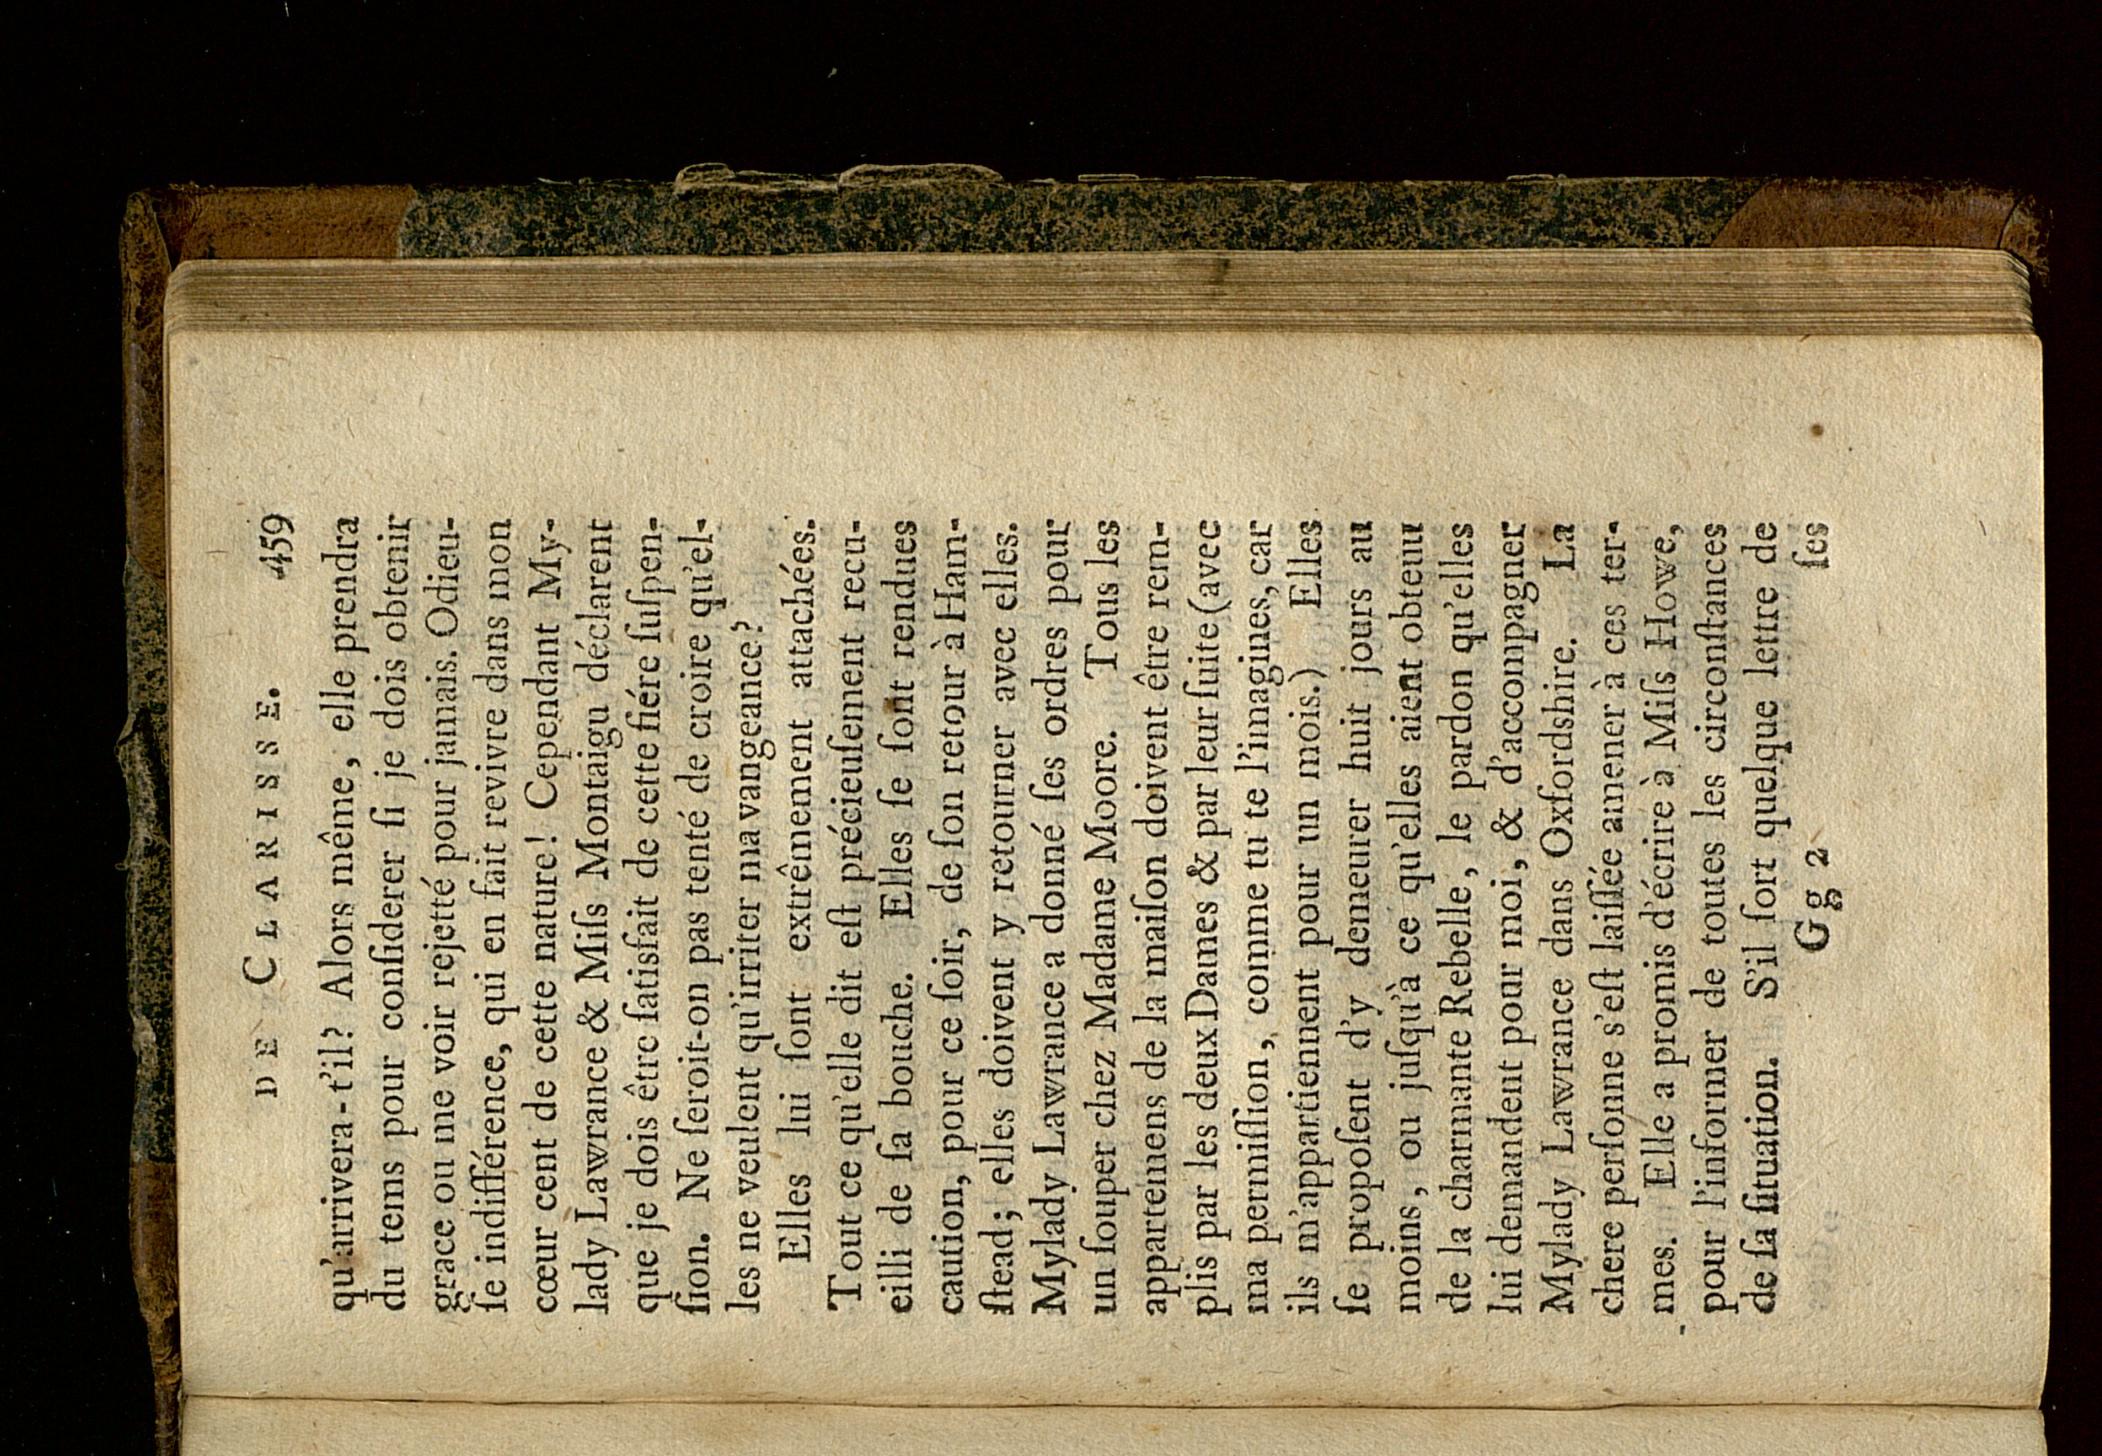 DE CLARISSE. 459
qu'arrivera-t'il? Alors même, elle prendra
du tems pour conſiderer ſi je dois obtenir
grace ou me voir rejetté pour jamais. Odieu-
ſe indifférence, qui en fait revivre dans mon
cœur cent de cette nature! Cependant My-
lady Lawrance & Miſs Montaigu déclarent
que je dois être ſatisfait de cette fiére ſuſpen-
ſion. Ne ſeroit-on pas tenté de croire qu'el-
les ne veulent qu'irriter ma vangeance?
Elles lui ſont extrêmement attachées.
Tout ce qu'elle dit eſt précieuſement recu-
eilli de ſa bouche. Elles ſe ſont rendues
caution, pour ce ſoir, de ſon retour à Ham-
ſtead; elles doivent y retourner avec elles.
Mylady Lawrance a donné ſes ordres pour
un ſouper chez Madame Moore. Tous les
appartemens de la maiſon doivent être rem-
plis par les deux Dames & par leur ſuite (avec
ma permiſſion, comme tu te l'imagines, car
ils m'appartiennent pour un mois.) Elles
ſe propoſent d'y demeurer huit jours au
moins, ou juſqu'à ce qu'elles aient obtenu
de la charmante Rebelle, le pardon qu'elles
lui demandent pour moi, & d'accompagner
Mylady Lawrance dans Oxfordshire. La
chere perſonne s'eſt laiſſée amener à ces ter-
mes. Elle a promis d'écrire à Miſs Howe,
pour l'informer de toutes les circonſtances
de ſa ſituation. S'il ſort quelque lettre de
Gg 2 ſes